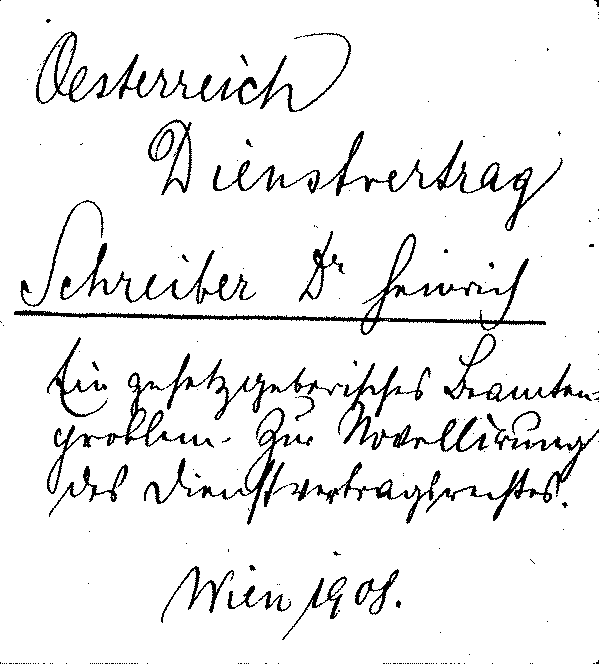 Oesterreich
Dienstvertrag
Schreiber Dr Heinrich
Ein gesetzgeberisches Beamten-
problem. Zur Novellirung
des Dienstvertragsrechtes.
Wien 1908.